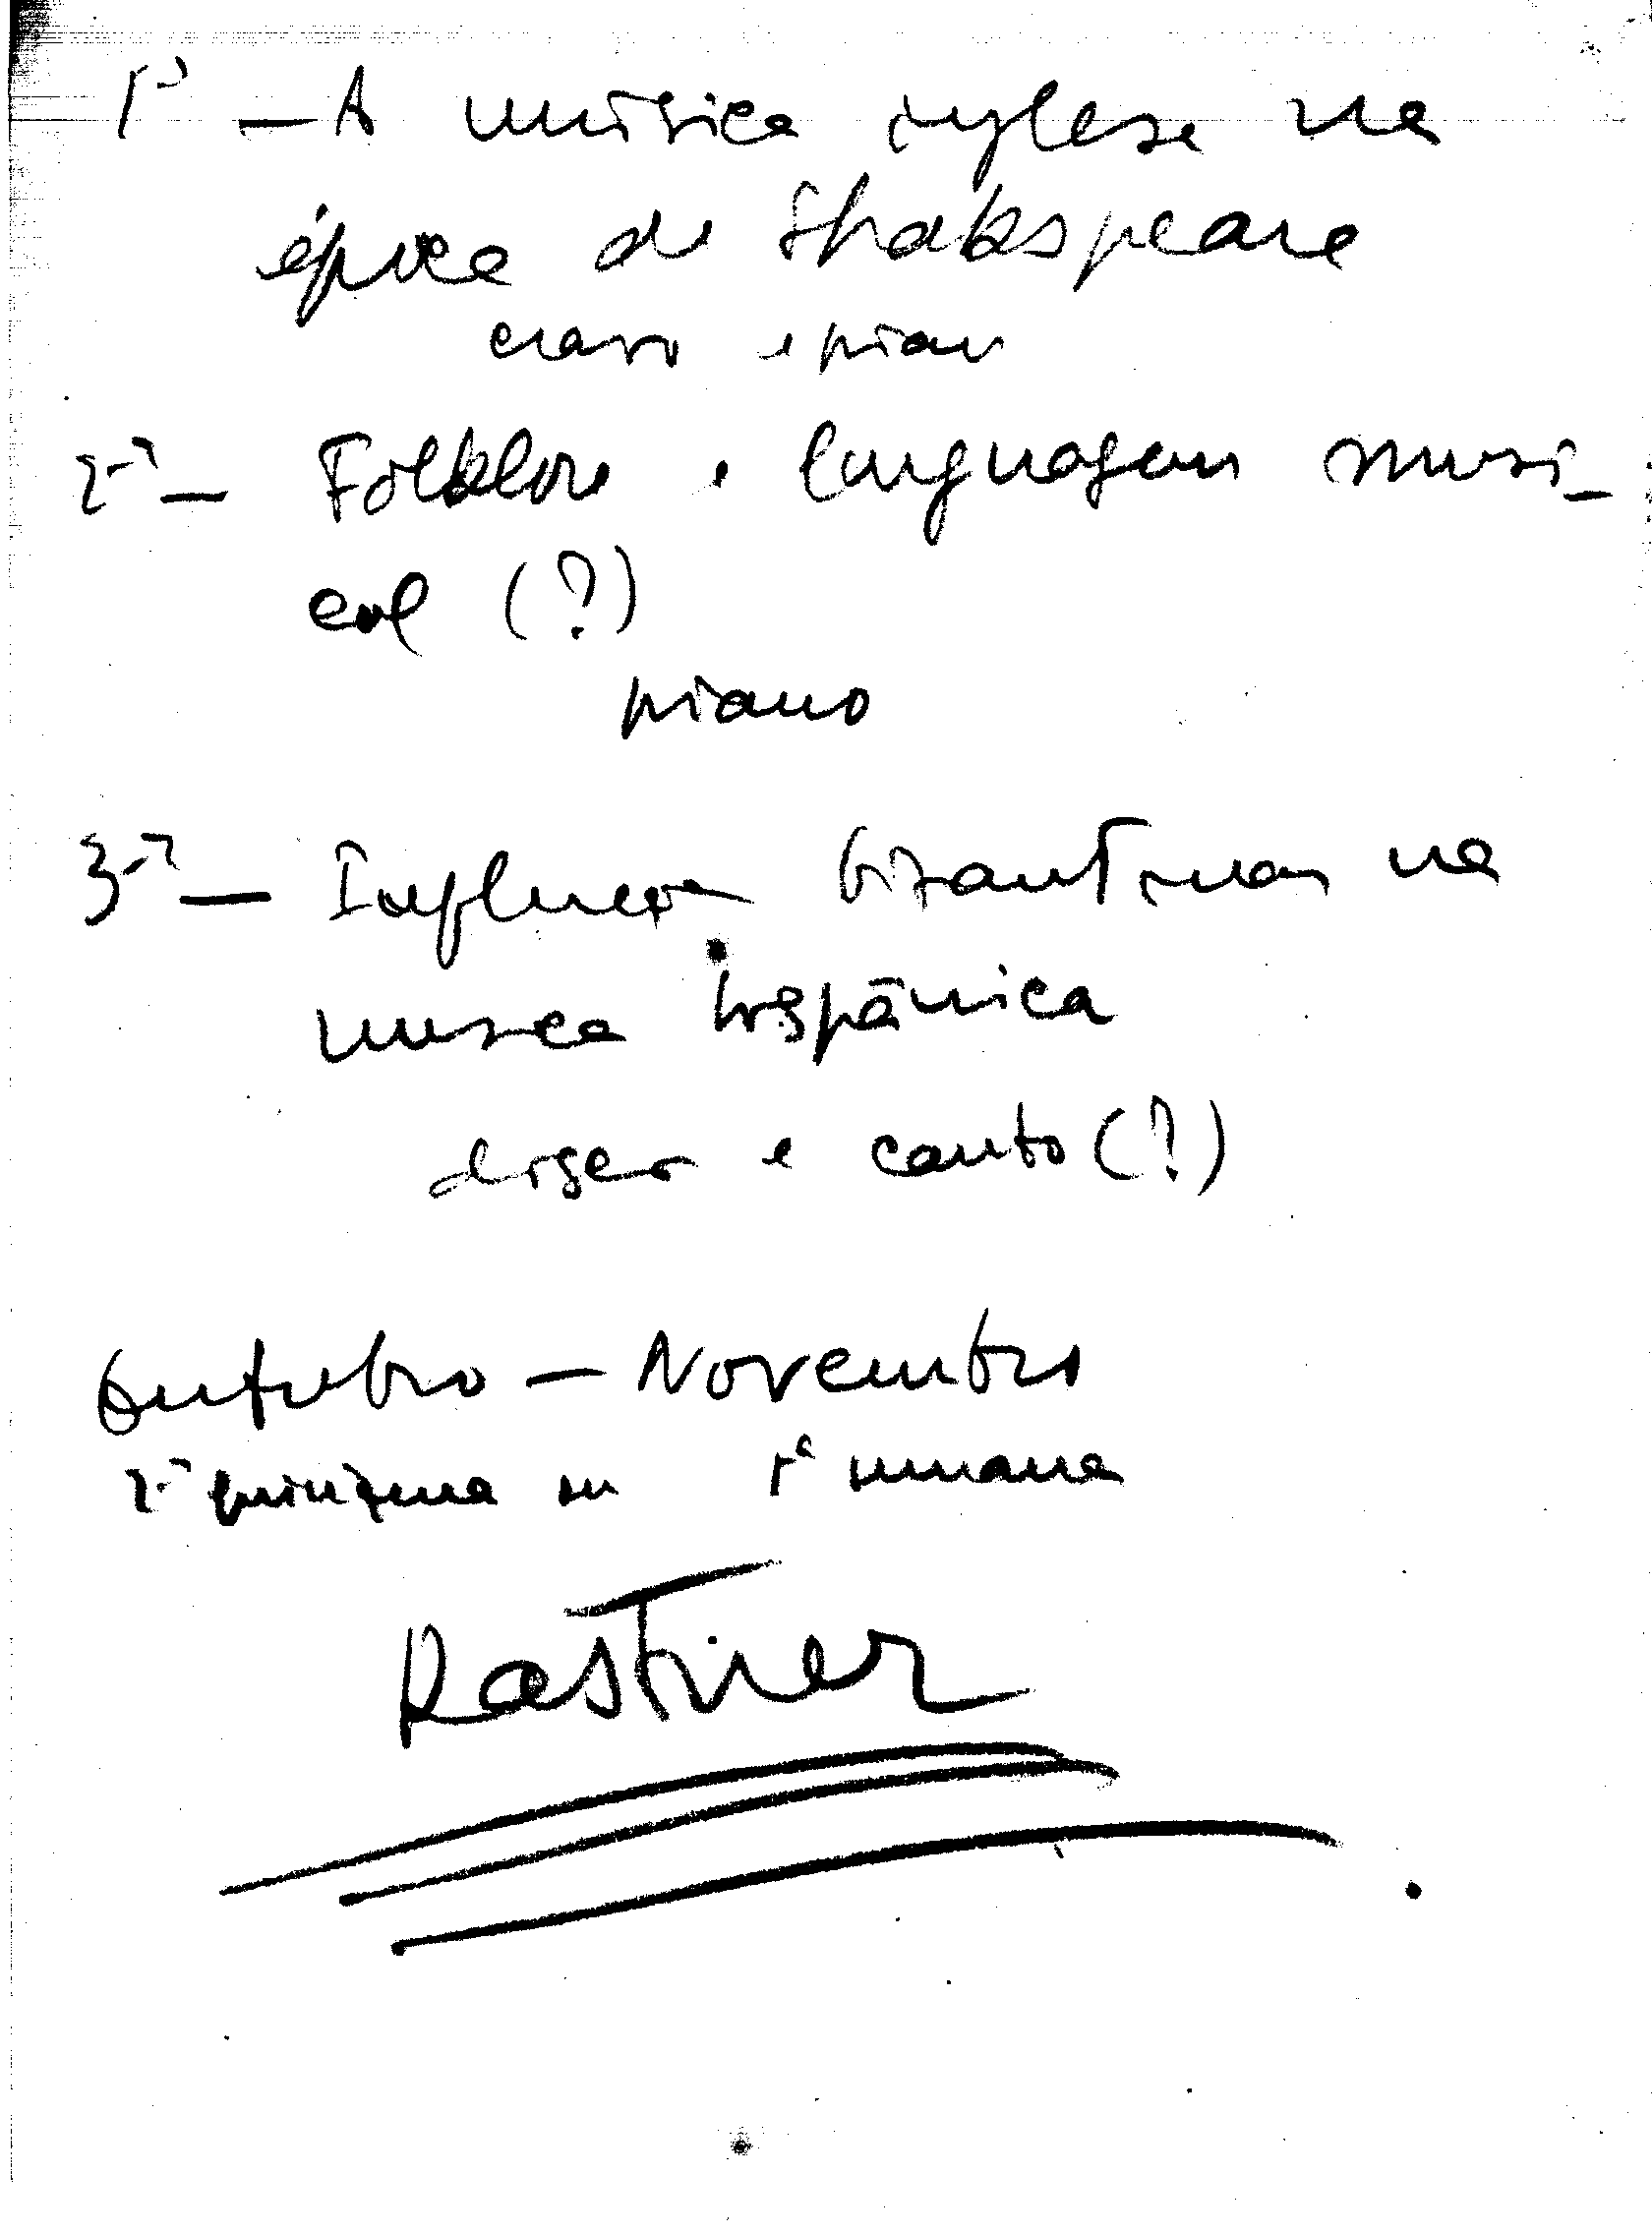 1ª — A música inglesa na
época de Shakspeare
cravo e piano
2ª — Folklore e linguagem musi-
cal (?)
piano
3ª — Influência bizantinas na
musica hispânica
e canto (?)
Outubro — Novembro
2ª quinzena ou 1ª semana